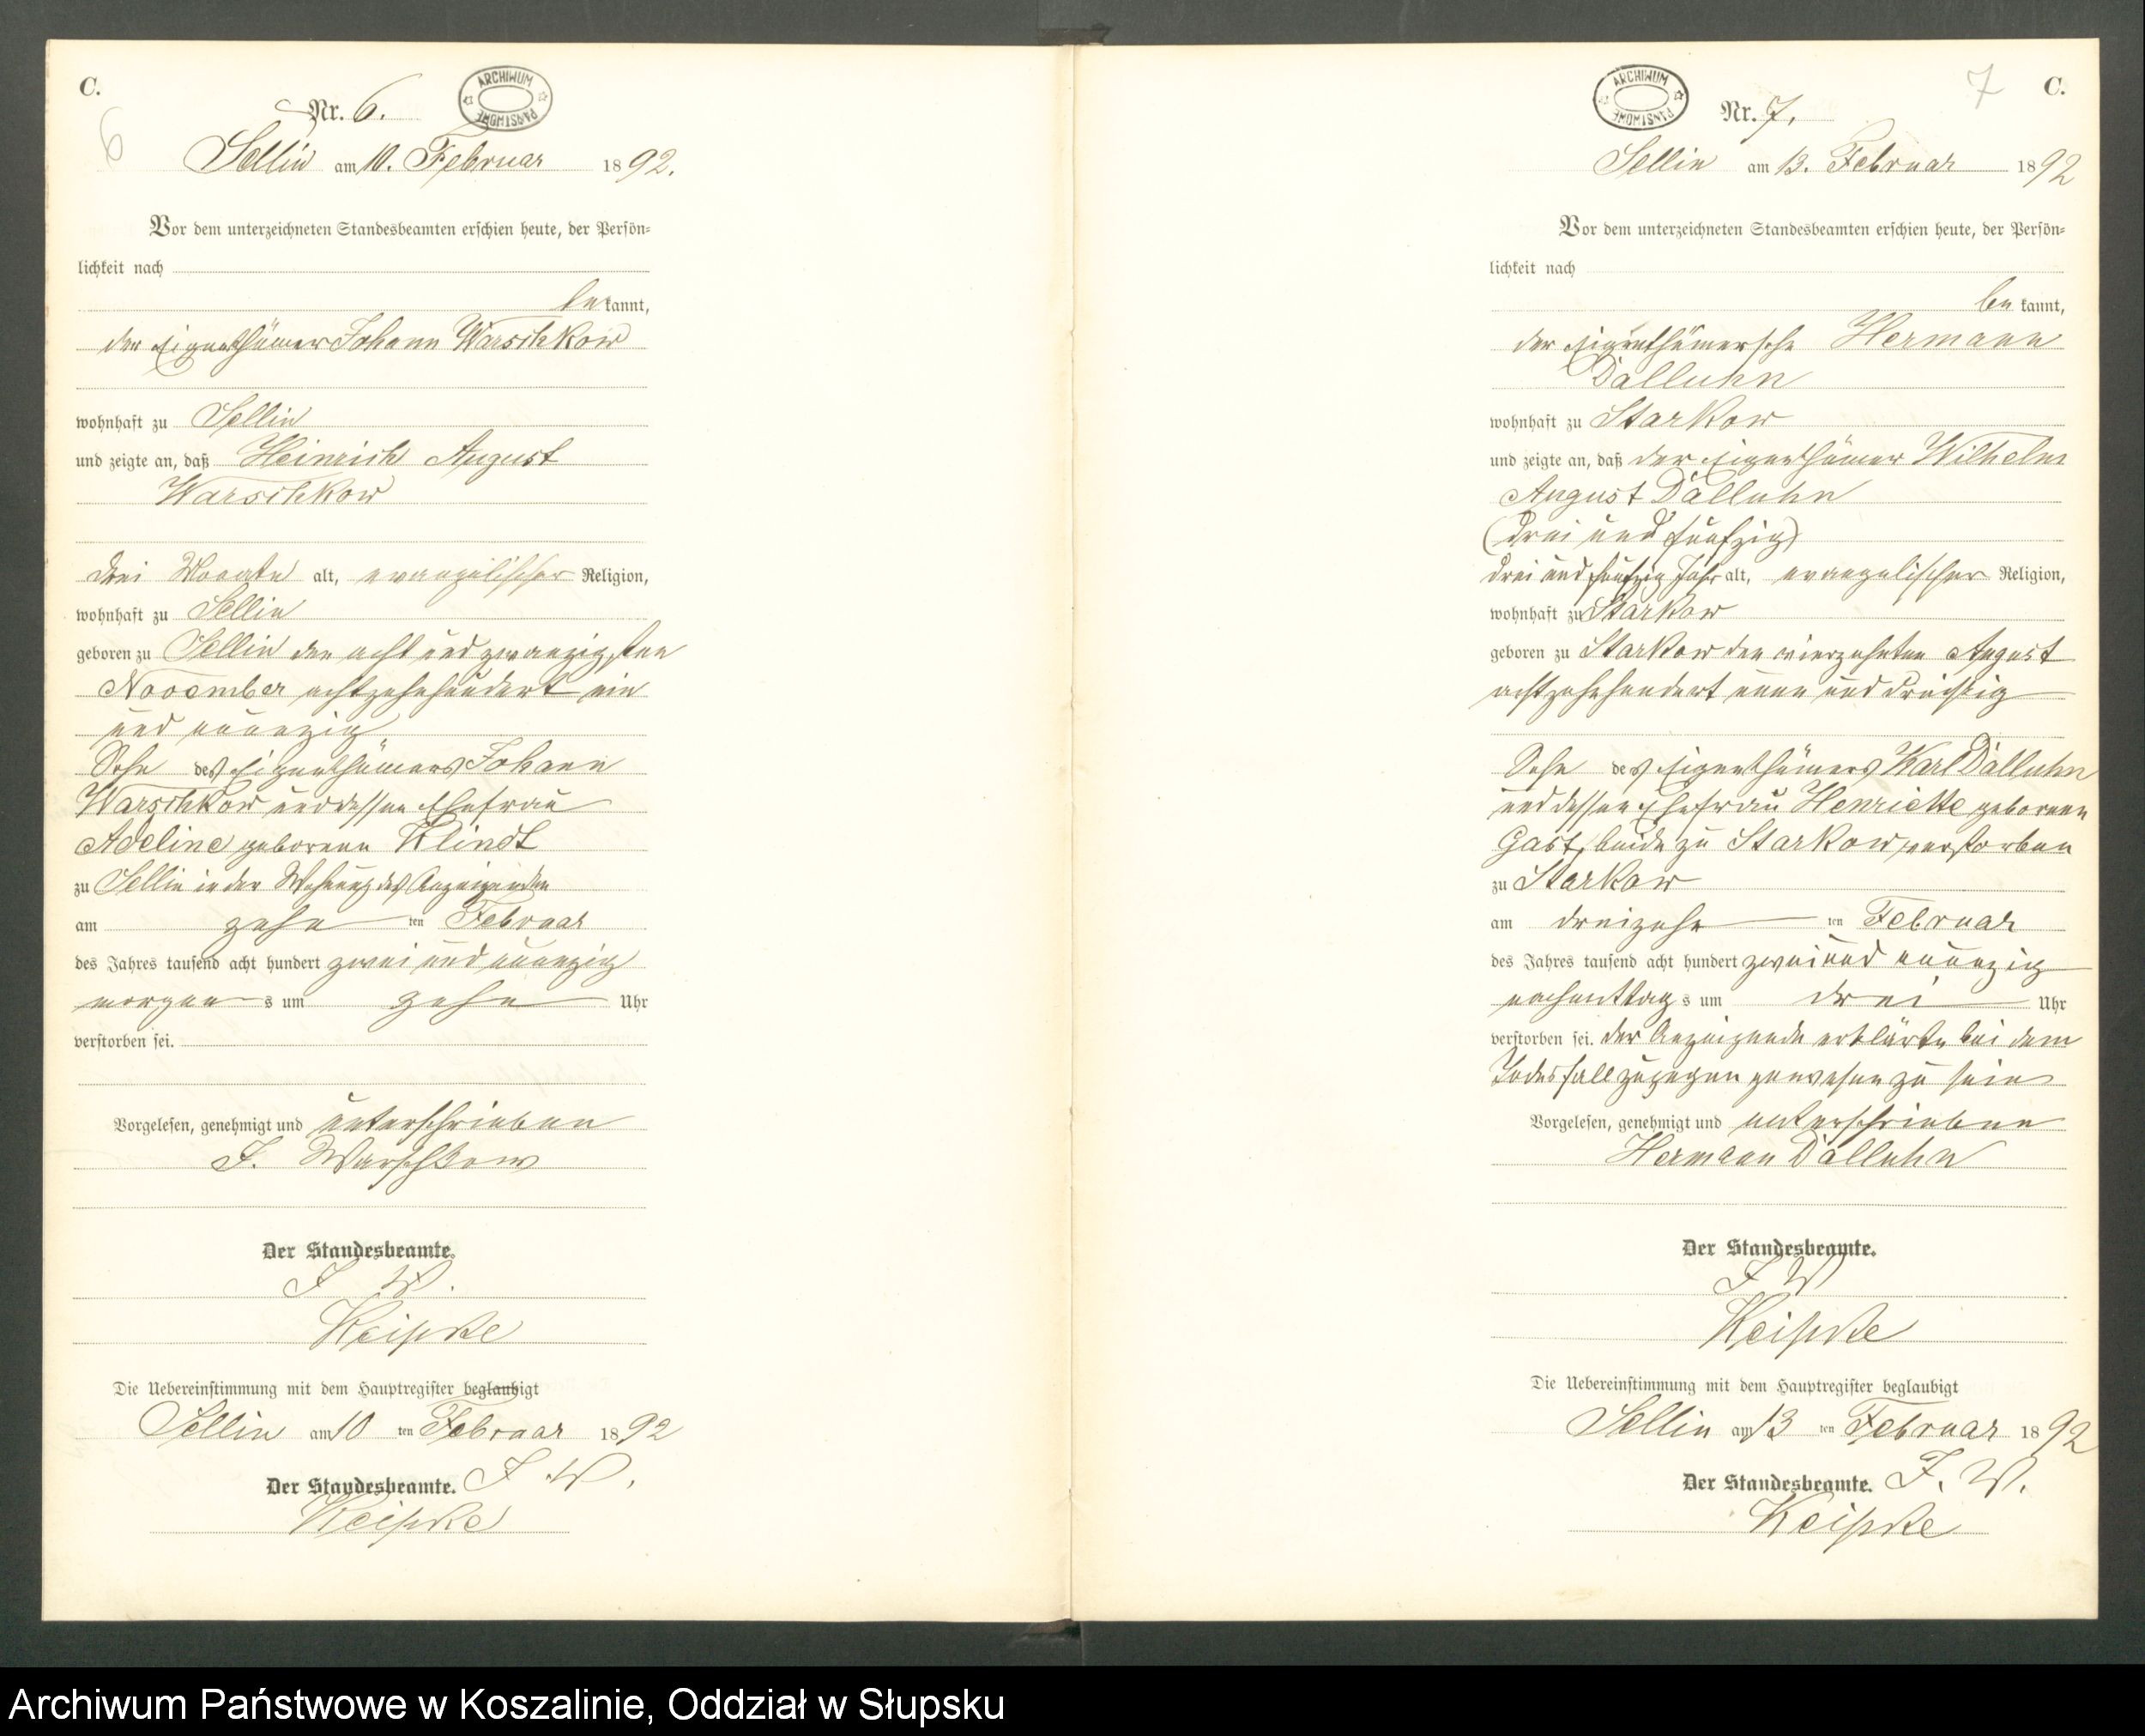 C.
6
Nr. 6.
ARCHIWUM PAŃSTWOWE
Sellin am 10. Februar 1892.
Vor dem unterzeichneten Standesbeamten erschien heute, der Persön-
lichkeit nach
bekannt,
der Eigenthümer Johann Warschkow
wohnhaft zu Sellin
und zeigte an, daß Heinrich August
Warschkow
drei Monate alt, evangelischer Religion,
wohnhaft zu Sellin
geboren zu Sellin den acht und zwanzigsten
November achtzehnhundert ein
und neunzig
Sohn des Eigenthümers Johann
Warschkow und dessen Ehefrau
Adeline geborenen Klindt
zu Sellin in der Wohnung des Anzeigenden
am zehnten Februar
des Jahres tausend acht hundert zwei und neunzig
morgens um zehn Uhr
verstorben sei.
Vorgelesen, genehmigt und unterschrieben
J. Warschkow
Der Standesbeamte.
J W.
Keipke
Die Uebereinstimmung mit dem Hauptregister beglaubigt
Sellin am 10ten Februar 1892
Der Standesbeamte. J W.
Keipke
7
C.
ARCHIWUM PAŃSTWOWE
Nr. 7.
Sellin am 13. Februar 1892
Vor dem unterzeichneten Standesbeamten erschien heute, der Persön-
lichkeit nach
bekannt,
der Eigenthümersohn Hermann
Dalluhn
wohnhaft zu Starkow
und zeigte an, daß der Eigenthümer Wilhelm
August Dalluhn
(drei und fünfzig)
drei und fünfzig Jahr alt, evangelischer Religion,
wohnhaft zu Starkow
geboren zu Starkow den vierzehnten August
achtzehnhundert neun und dreißig
Sohn des Eigenthümers Karl Dalluhn
und dessen Ehefrau Henriette geborenen
Gast, beide zu Starkow verstorben
zu Starkow
am dreizehnten Februar
des Jahres tausend acht hundert zwei und neunzig
nachmittags um drei Uhr
verstorben sei. der Anzeigende erklärte bei dem
Todesfall zugegen gewesen zu sein
Vorgelesen, genehmigt und unterschrieben
Hermann Dalluhn
Der Standesbeamte.
J W
Keipke
Die Uebereinstimmung mit dem Hauptregister beglaubigt
Sellin am 13ten Februar 1892
Der Standesbeamte. J. W.
Keipke
Archiwum Państwowe w Koszalinie, Oddział w Słupsku